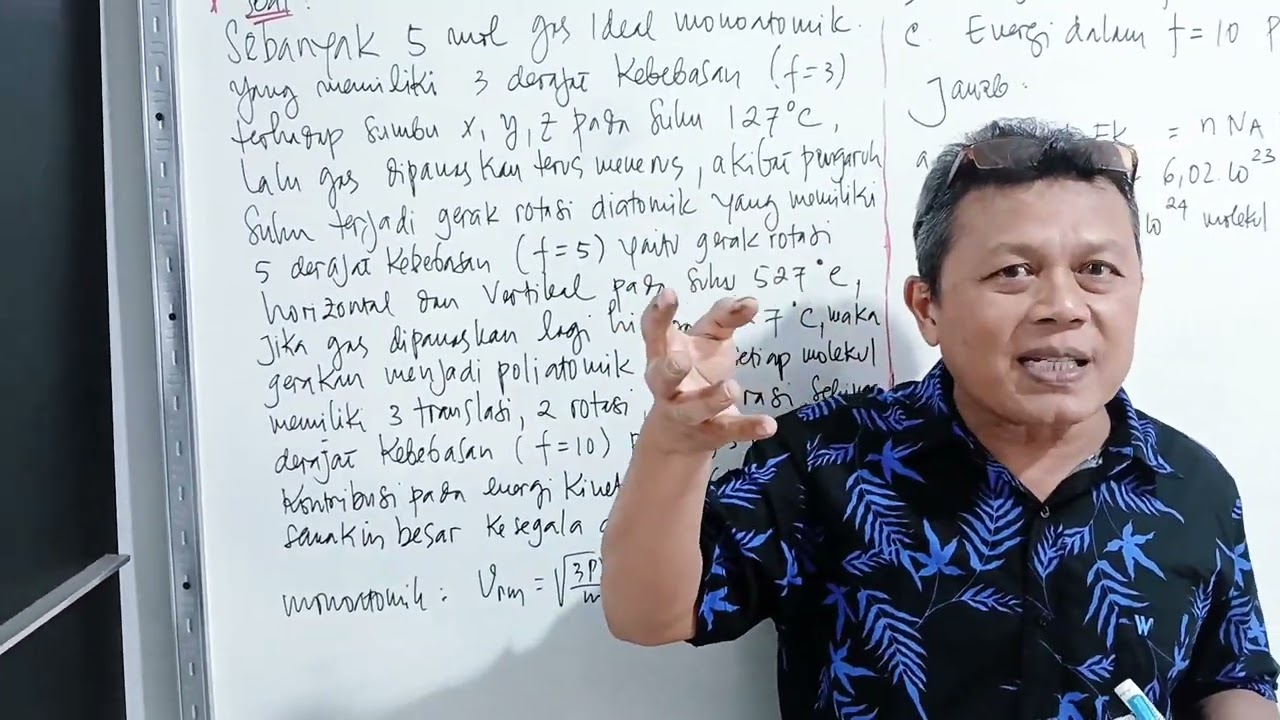 Soal :
Sebanyak 5 mol gas Ideal monoatomik.
yang memiliki 3 derajat Kebebasan (f=3)
terhadap sumbu x, y, z pada suhu 127°C,
lalu gas dipanaskan terus menerus, akibat pengaruh
Suhu terjadi gerak rotasi diatomik yang memiliki
5 derajat Kebebasan (f=5) yaitu gerak rotasi
horizontal dan Vertikal pada suhu 527°C,
Jika gas dipanaskan lagi 7°C, maka
gerakan menjadi poliatomik setiap molekul
memiliki 3 translasi, 2 rotasi,
derajat Kebebasan (f=10)
Kontribusi pada energi
semakin besar Ke segala
monoatomik :
c. Energi dalam f=10
Jawab :
a. = n NA
6,02.10²³
10²⁴ molekul
W